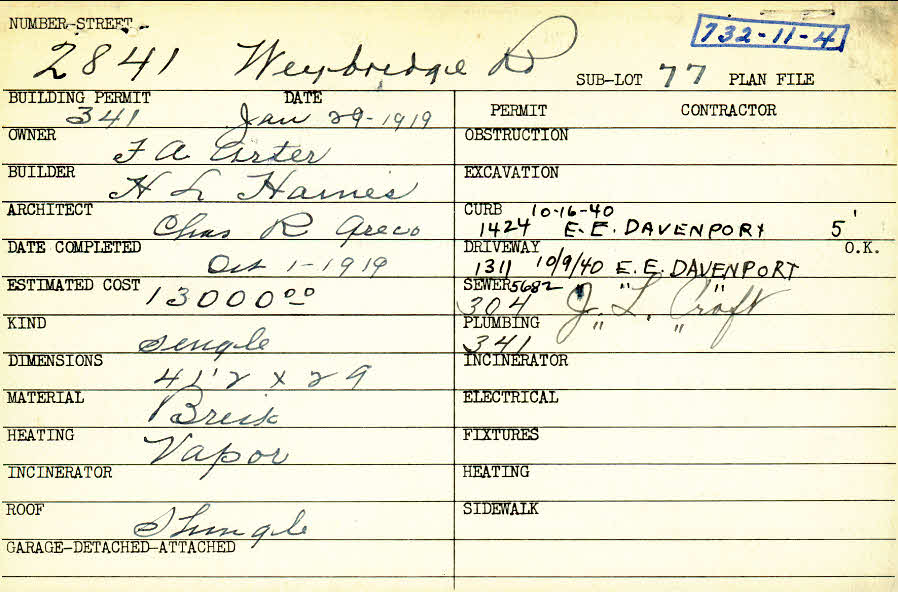 NUMBER-STREET
732-11-4
2841 Weybridge Rd
SUB-LOT 77 PLAN FILE
BUILDING PERMIT DATE
341 Jan 29-1919
OWNER
F A Arter
BUILDER
H L Haines
ARCHITECT
Chas R Greco
DATE COMPLETED
Oct 1-1919
ESTIMATED COST
13000 00
KIND
Single
DIMENSIONS
41'2 x 29
MATERIAL
Brick
HEATING
Vapor
INCINERATOR
ROOF
Shingle
GARAGE-DETACHED-ATTACHED
PERMIT CONTRACTOR
OBSTRUCTION
EXCAVATION
CURB 10-16-40
1424 E.E. DAVENPORT 5'
DRIVEWAY O.K.
1311 10/9/40 E.E. DAVENPORT
SEWER 5682 " " "
304 J. L. Croft
PLUMBING " "
341
INCINERATOR
ELECTRICAL
FIXTURES
HEATING
SIDEWALK